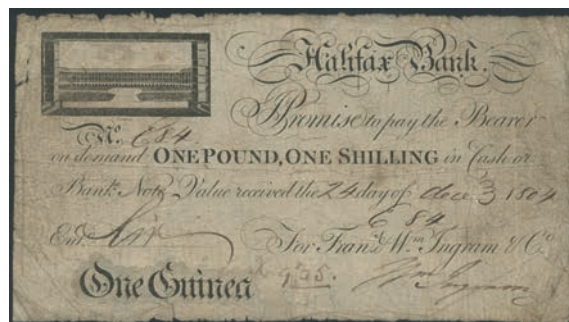 Halifax Bank.
I Promise to pay the Bearer
No. E84
on demand ONE POUND, ONE SHILLING in Cash or
Bank Note Value received the 24 day of decr 3 1804
E 84
Entd
For Frans. & Wm. Ingram & Co.
One Guinea
Wm Ingram